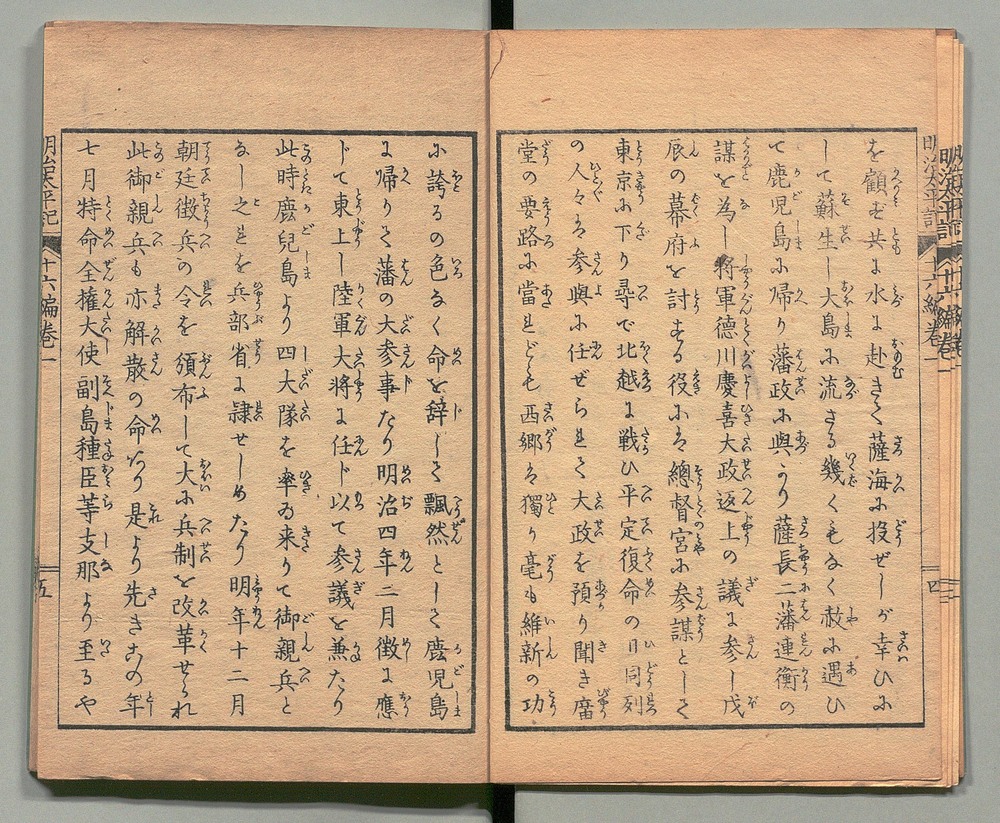 を顧ず共に水に赴きて薩海に投ぜしが幸ひに
して蘇生し大島に流さる幾くもなく赦に遇ひ
て鹿児島に帰り藩政に與かり薩長二藩連衡の
謀を為し将軍徳川慶喜大政返上の議に参し戊
辰の幕府を討する役には總督宮に参謀として
東京に下り尋で北越に戦ひ平定復命の日同列
の人々は参與に任ぜられて大政を預り聞き廟
堂の要路に當れども西郷は獨り毫も維新の功
明治太平記 十六編巻一 四
に誇るの色なく命を辞して飄然として鹿児島
に帰りて藩の大参事たり明治四年二月徴に應
じて東上し陸軍大将に任じ以て参議を兼たり
此時鹿児島より四大隊を率ゐ来りて御親兵と
なし之を兵部省に隷せしめたり明年十二月
朝廷徴兵の令を頒布して大に兵制を改革せられ
此御親兵も亦解散の命あり是より先きこの年
七月特命全権大使副島種臣等支那より至るや
明治太平記 十六編巻一 五